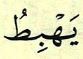 يَهْبِطُ